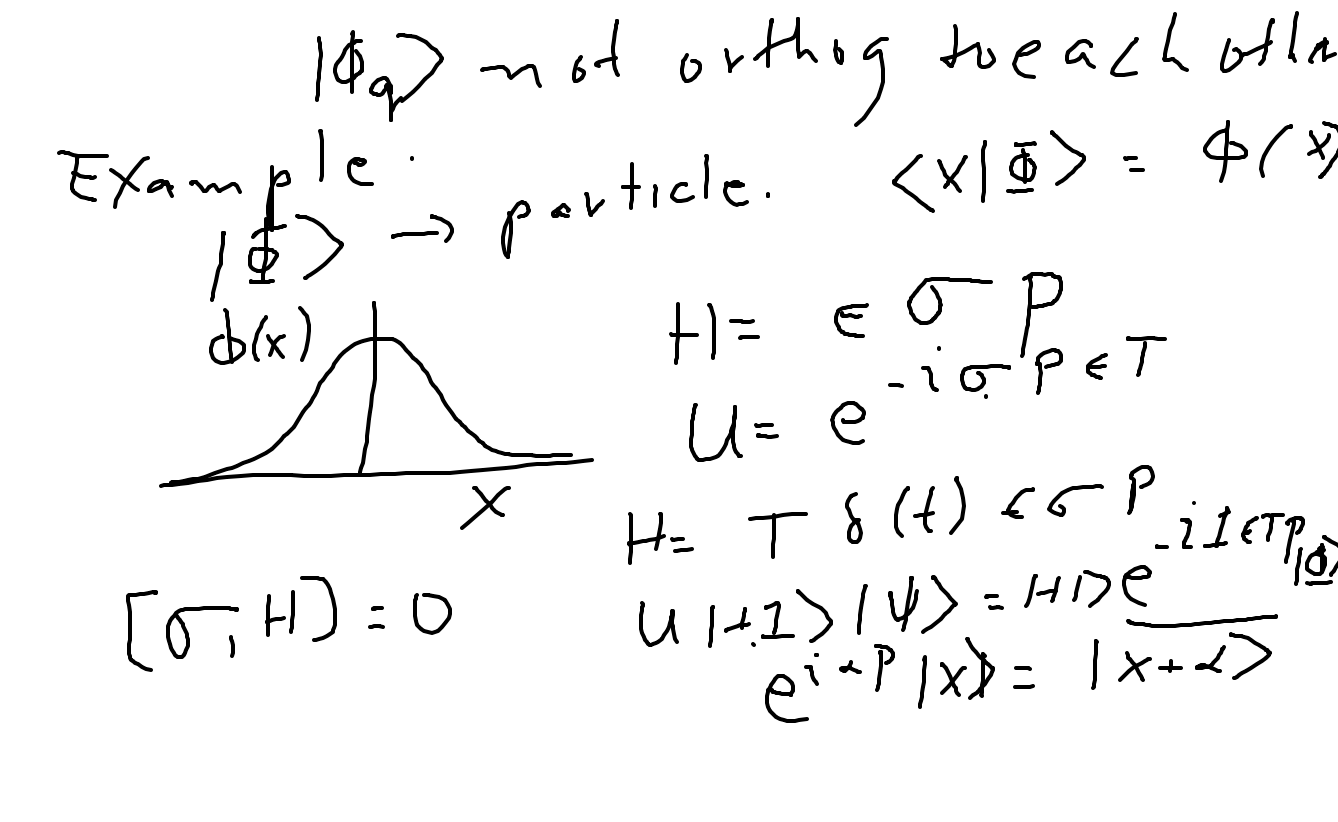 |Φq> not orthog to each oth
Example:
<x|Φ> = ϕ(x)
|Φ> → particle.
ϕ(x)
H= ϵ σ P
U= e^{-iσPϵT}
x
H= T δ(t) ϵσP
[σ, H] = 0
U|+1>|ψ> = |+1>e^{-i1ϵTP}|Φ>
e^{iαP}|x> = |x+α>